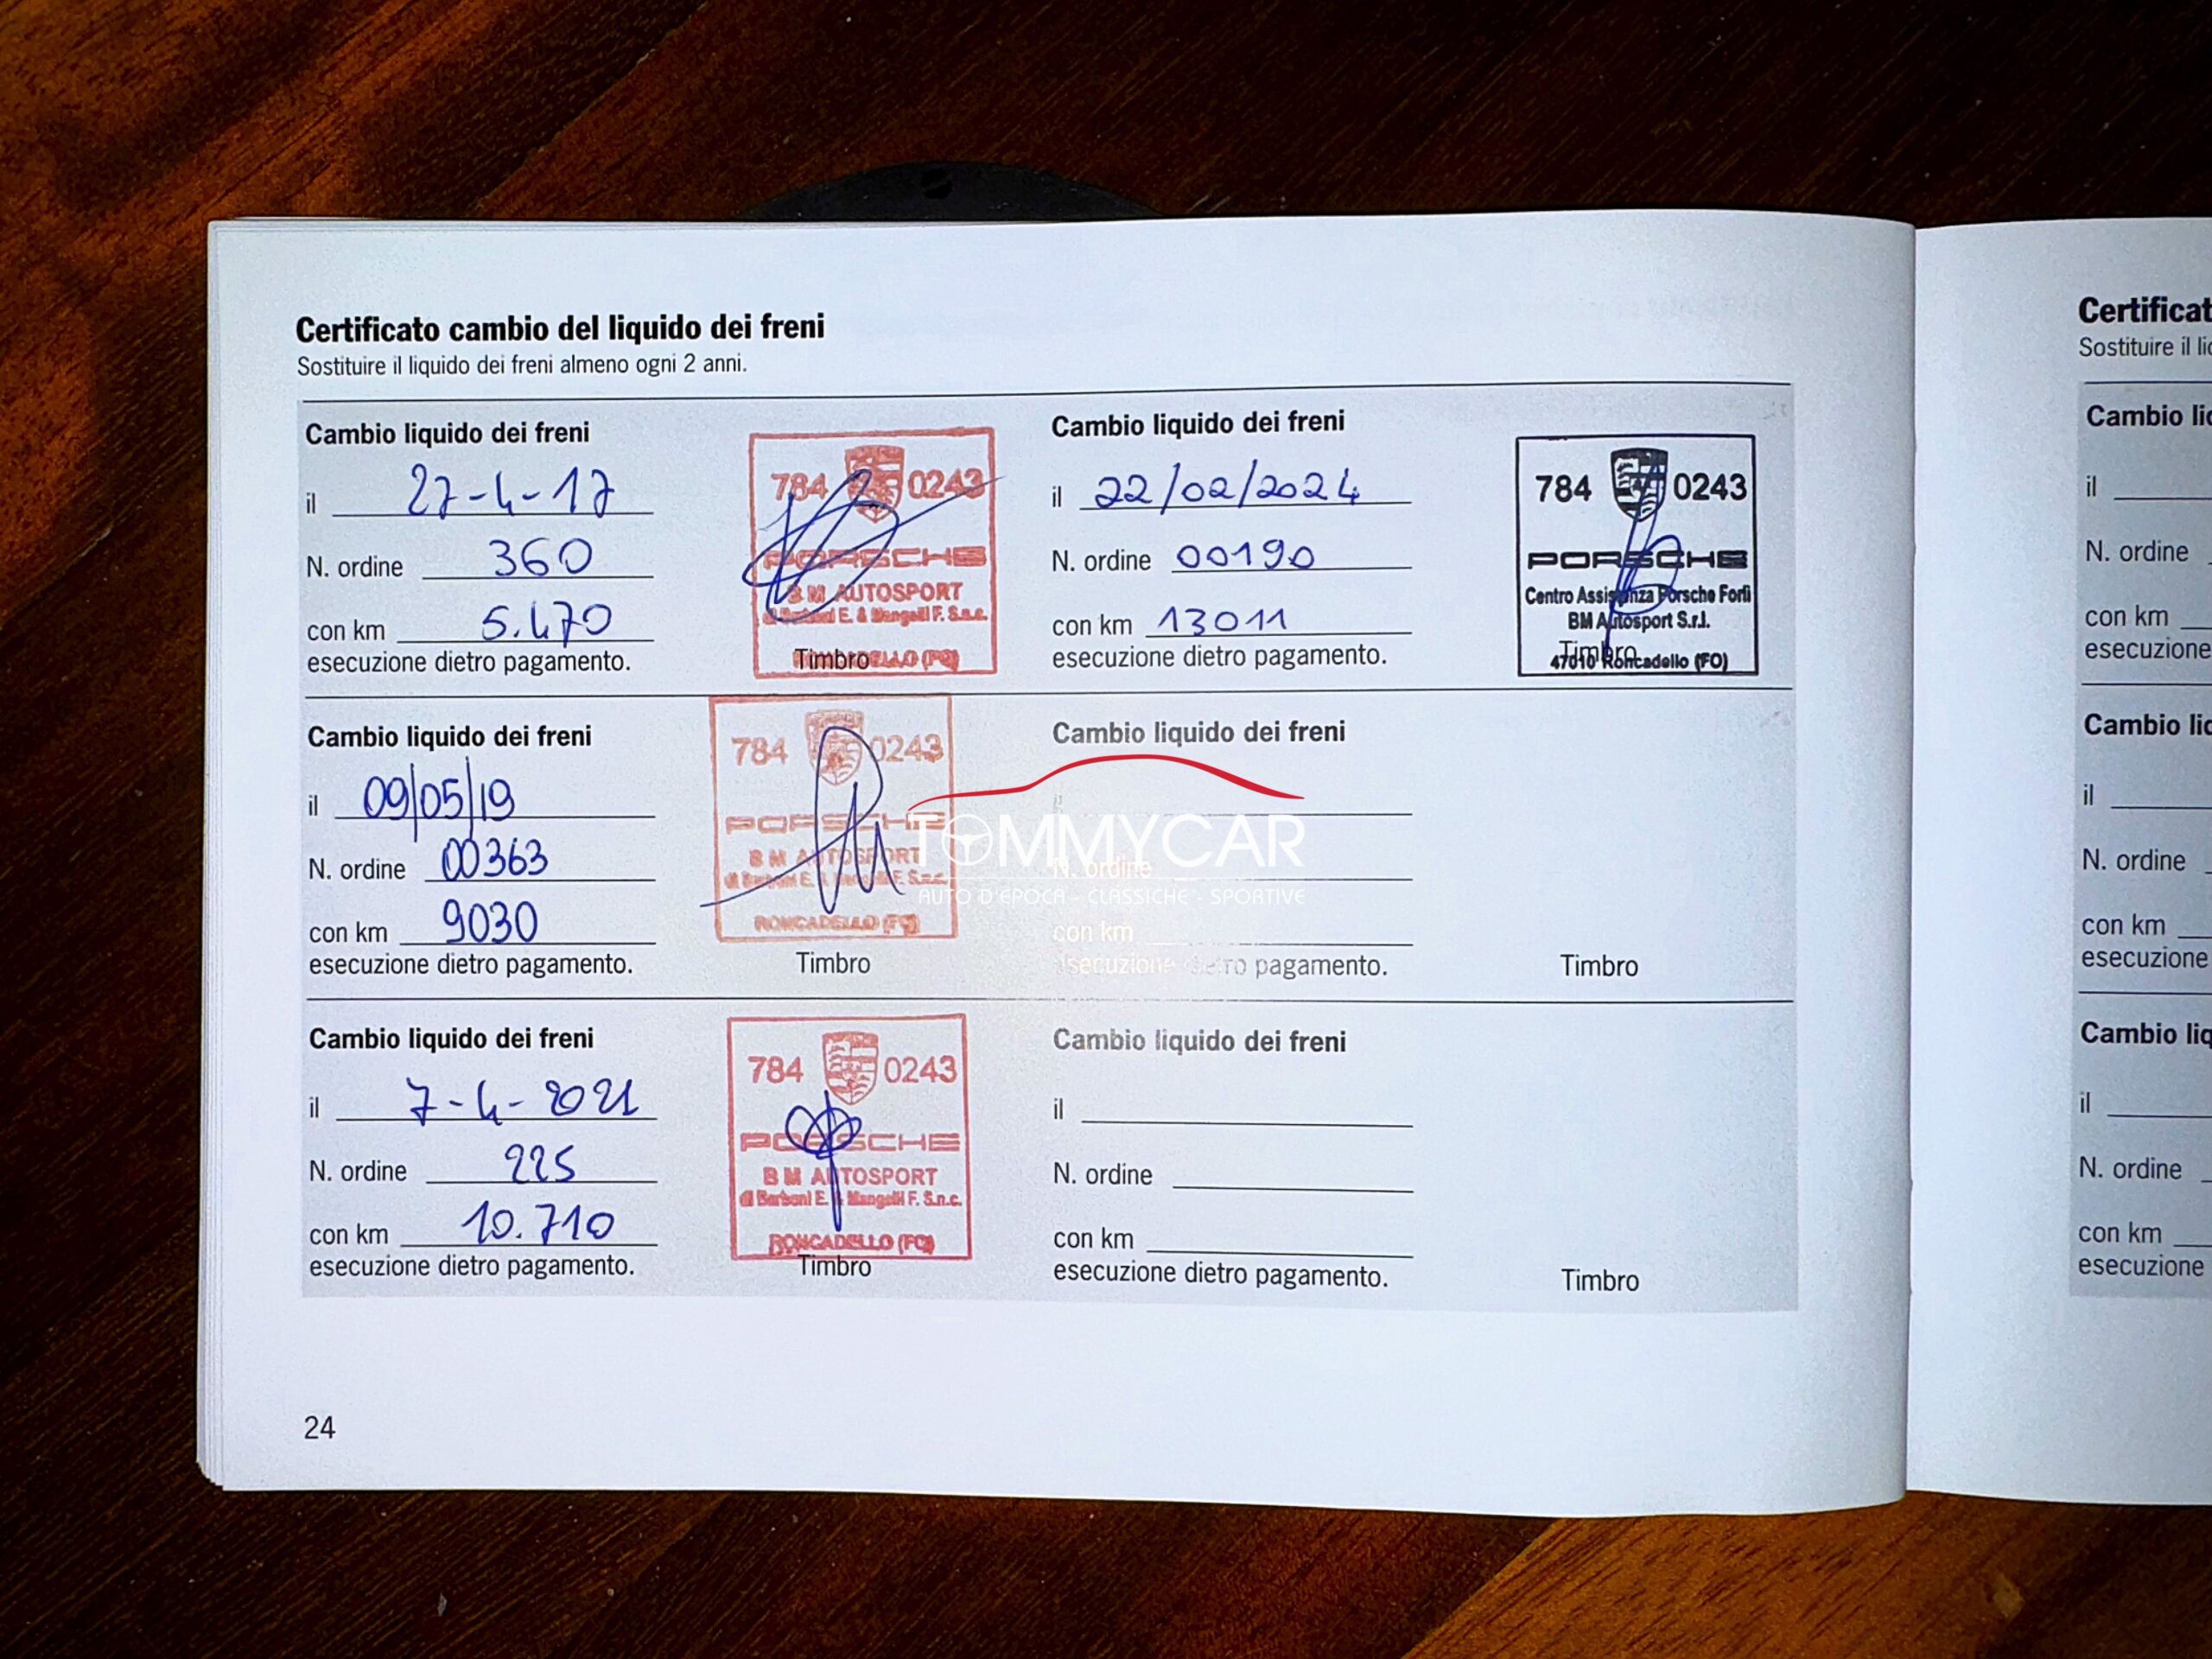 Certificato cambio del liquido dei freni
Sostituire il liquido dei freni almeno ogni 2 anni.
Cambio liquido dei freni
il 27-4-17
N. ordine 360
con km 5.470
esecuzione dietro pagamento.
784 0243
PORSCHE
BM AUTOSPORT
di Barboni E. & Mangelli F. S.n.c.
RONCADELLO (FO)
Timbro
Cambio liquido dei freni
il 22/02/2024
N. ordine 00190
con km 13011
esecuzione dietro pagamento.
784 0243
PORSCHE
Centro Assistenza Porsche Forlì
BM Autosport S.r.l.
47010 Roncadello (FO)
Timbro
Cambio liquido dei freni
il 09/05/19
N. ordine 00363
con km 9030
esecuzione dietro pagamento.
784 0243
PORSCHE
BM AUTOSPORT
di Barboni E. & Mangelli F. S.n.c.
RONCADELLO (FO)
Timbro
Cambio liquido dei freni
il
N. ordine
con km
esecuzione dietro pagamento.
Timbro
TOMMYCAR
AUTO D'EPOCA - CLASSICHE - SPORTIVE
Cambio liquido dei freni
il 7-4-2021
N. ordine 225
con km 10.710
esecuzione dietro pagamento.
784 0243
PORSCHE
BM AUTOSPORT
di Barboni E. & Mangelli F. S.n.c.
RONCADELLO (FO)
Timbro
Cambio liquido dei freni
il
N. ordine
con km
esecuzione dietro pagamento.
Timbro
24
Certificat
Sostituire il lic
Cambio lic
il
N. ordine
con km
esecuzione
Cambio lic
il
N. ordine
con km
esecuzione
Cambio liq
il
N. ordine
con km
esecuzione